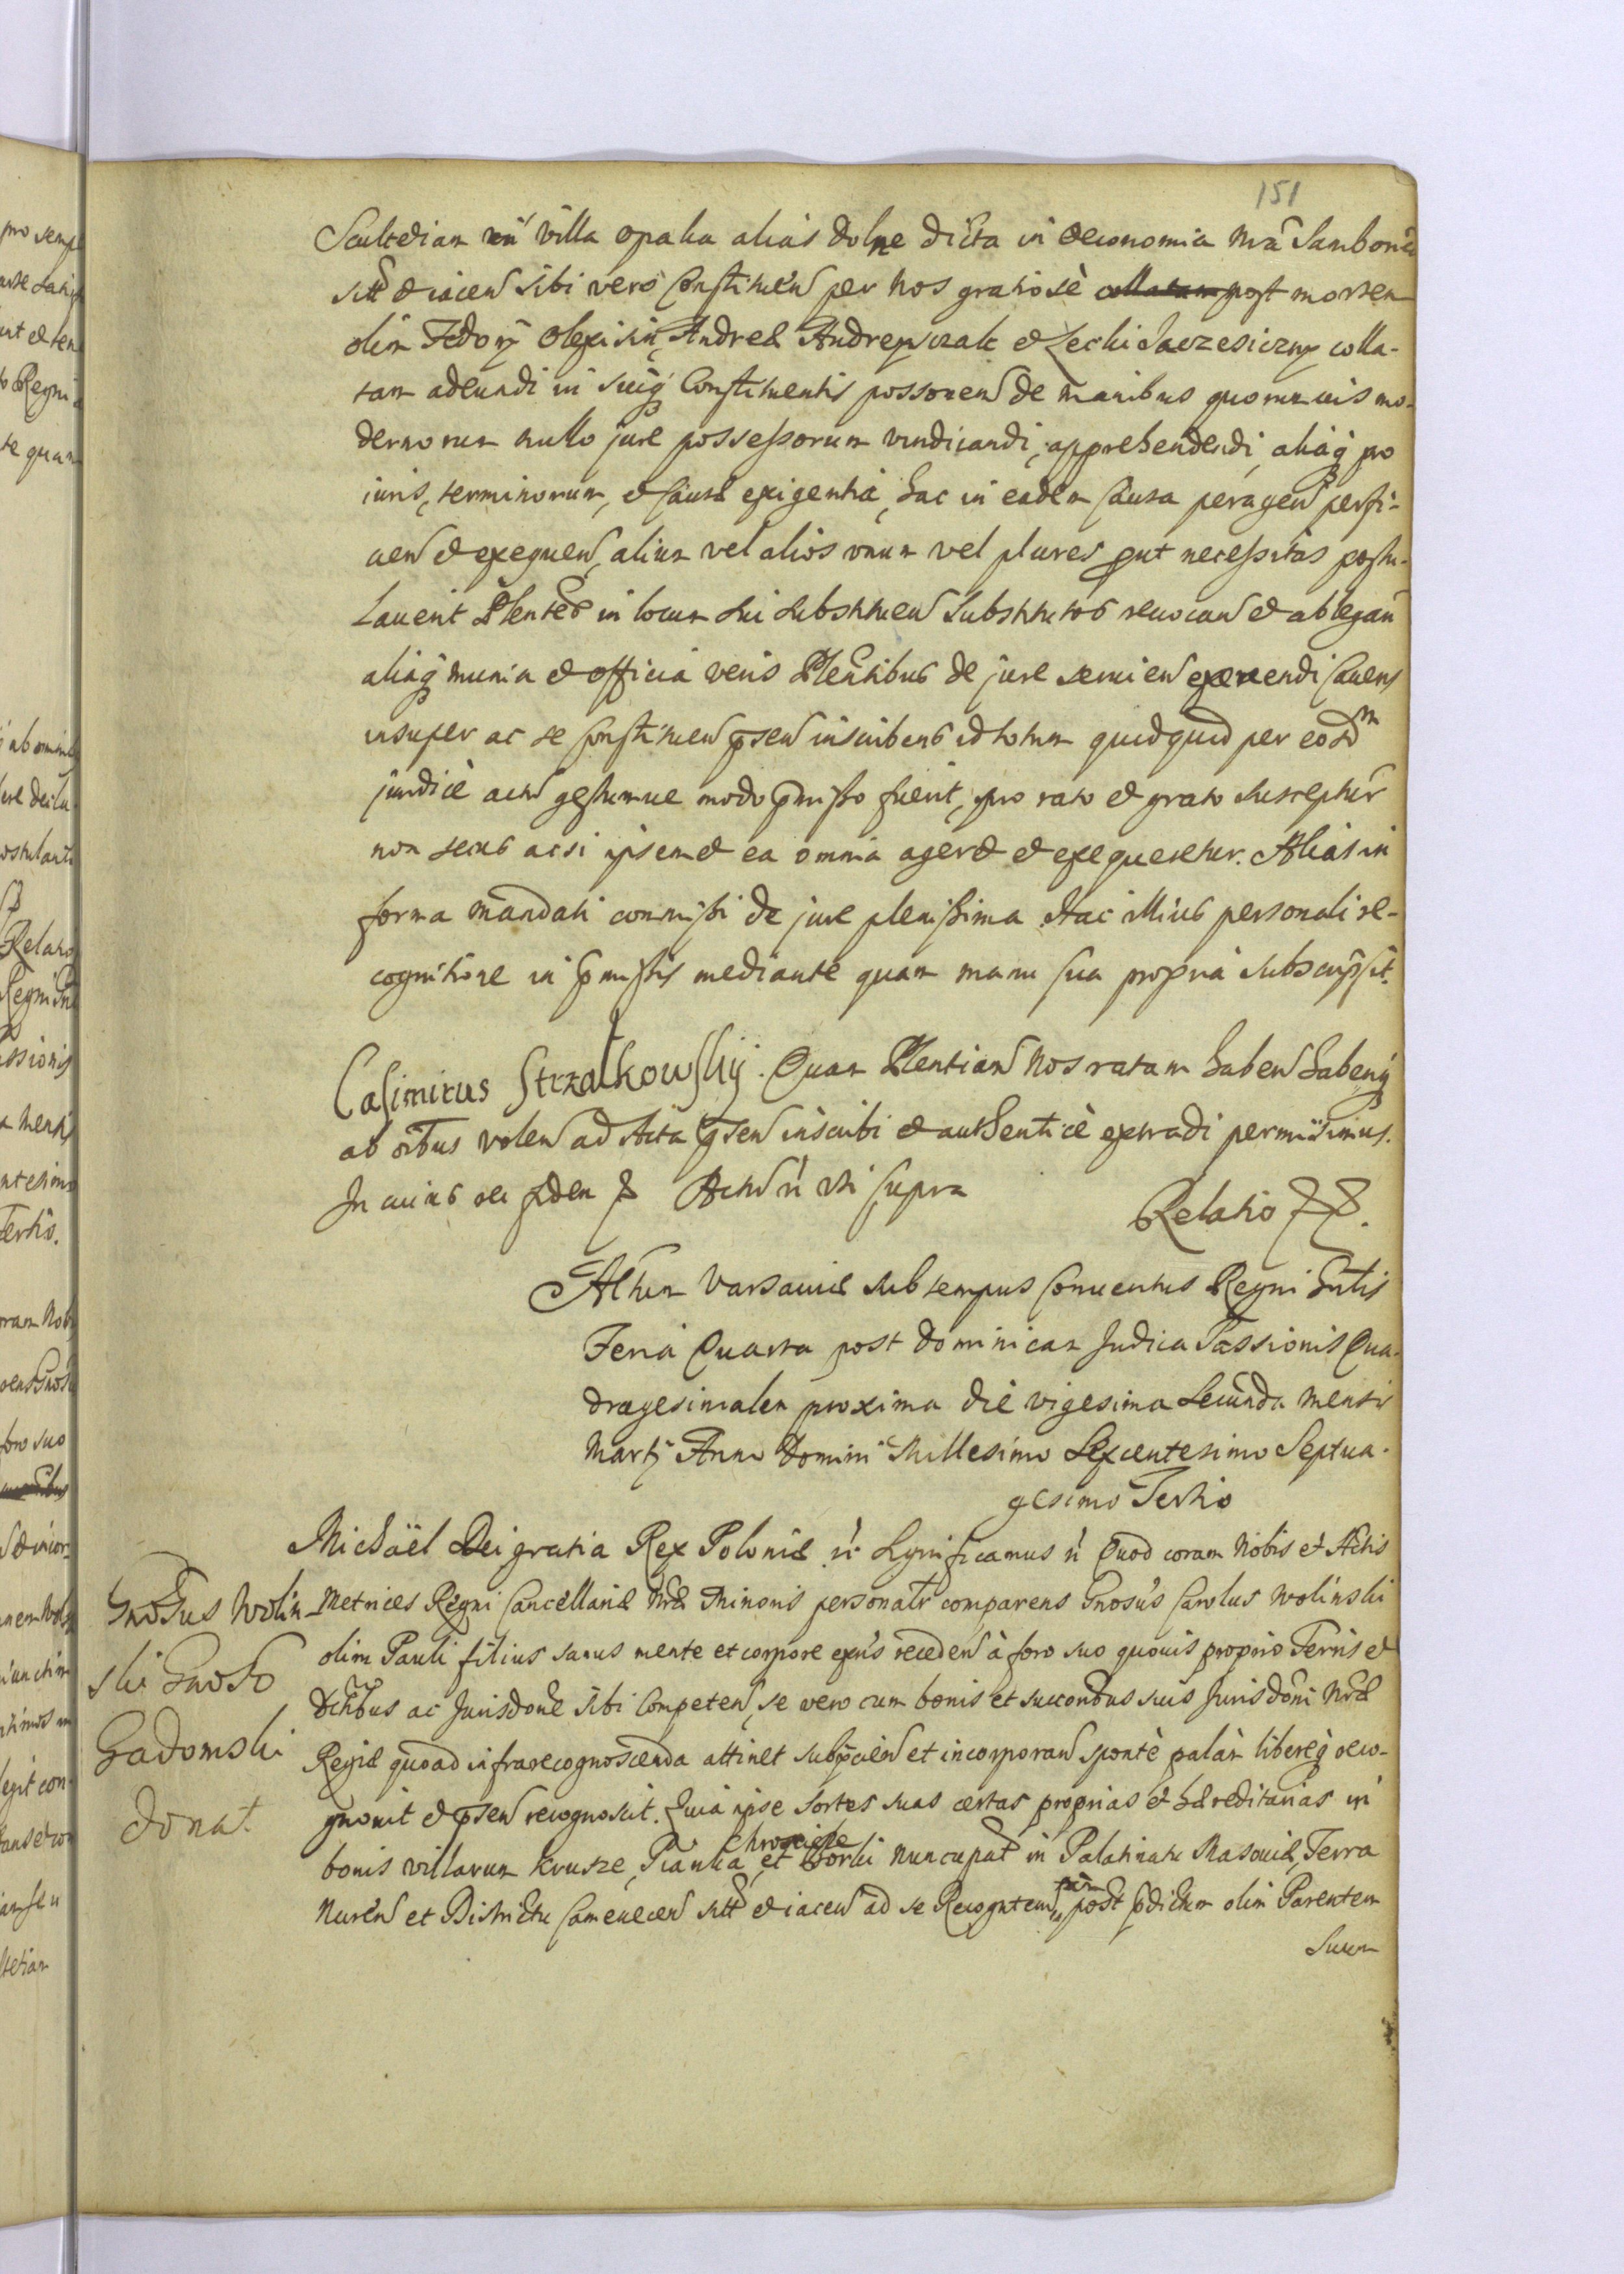 151
Scultetiam in villa Opaka alias dolne dicta in Oeconomia nrã Samborieñ
sitt et iaceñ sibi vero Constitueñ per nos gratiosè post mortem
olim Fedorÿ Olexisin, Andreæ Andreyczak et Lecki colla-
tam adeundi in suiq Constituentis possoneñ de manibus quorumuis mo-
dernorum nullo jure possessorum vindicandi, apprehendendi, aliaq pro
iuris, terminorum, et Causæ exigentia, hac in eadem Causa perageñ perfi-
cieñ et exequeñ, alium vel alios vnum vel plures prout necessitas postu-
lauerit Plentes in locum sui substitueñ Substitutos reuocañ et ablegañ
aliaq munia et officia veris Plentibus de jure seruieñ exercendi Cauens
insuper ac se Constitueñ pseñ inscribens id totum quidquid per eosdm
juridicè actũ gestumue modo pmisso fuerit, pro rato et grato suscepturũ
non secus acsi ipsemet ea omnia ageret et exequeretur. Alias in
forma mandati commissi de jure plenissima. Hac illius personali re-
cognitione in pmissis mediante quam manu sua propria subscripsit.
Casimirus Strzałkowskij. Quam Plentiam Nos ratam habeñ haberiq
ab oibus voleñ ad Acta pseñ inscribi et authenticè extradi permisimus.
In cuius rei fidem Actũ ut supra
Relatio
Actum Varsauiæ sub tempus Conuentus Regni Gnlis
Feria Quarta post Dominicam Judica Passionis Qua-
dragesimalem proxima die vigesima Secunda mensis
Martÿ Anno Domini Millesimo Sexcentesimo Septua-
gesimo Tertio
Michaël Dei gratia Rex Poloniæ Significamus Quod coram Nobis et Actis
Gnosus Wolin- Metrices Regni Cancellariæ Nræ Minoris personalr comparens Gnosus Carolus Wolinski
ski Gnoso olim Pauli filius sanus mente et corpore exns recedeñ à foro suo quouis proprio Terris et
Dctibus ac Jurisdone sibi Competeñ, se vero cum bonis et succoribus suis Jurisdoni Nræ
Gadomski Regiæ quoad infrarecognoscenda attinet subijcieñ et incorporañ sponte palàm libereq reco-
donat. gnouit et pseñ recognoscit. Quia ipse sortes suas certas proprias et hæreditarias in
bonis villarum Krusze, Pianka, Chroscicle et Borki nuncupat in Palatinatu Masouiæ, Terra
Nureñ et Districtu Cameneceñ sitt et iaceñ ad se Recognteñ post pdictum olim Parentem
Suum